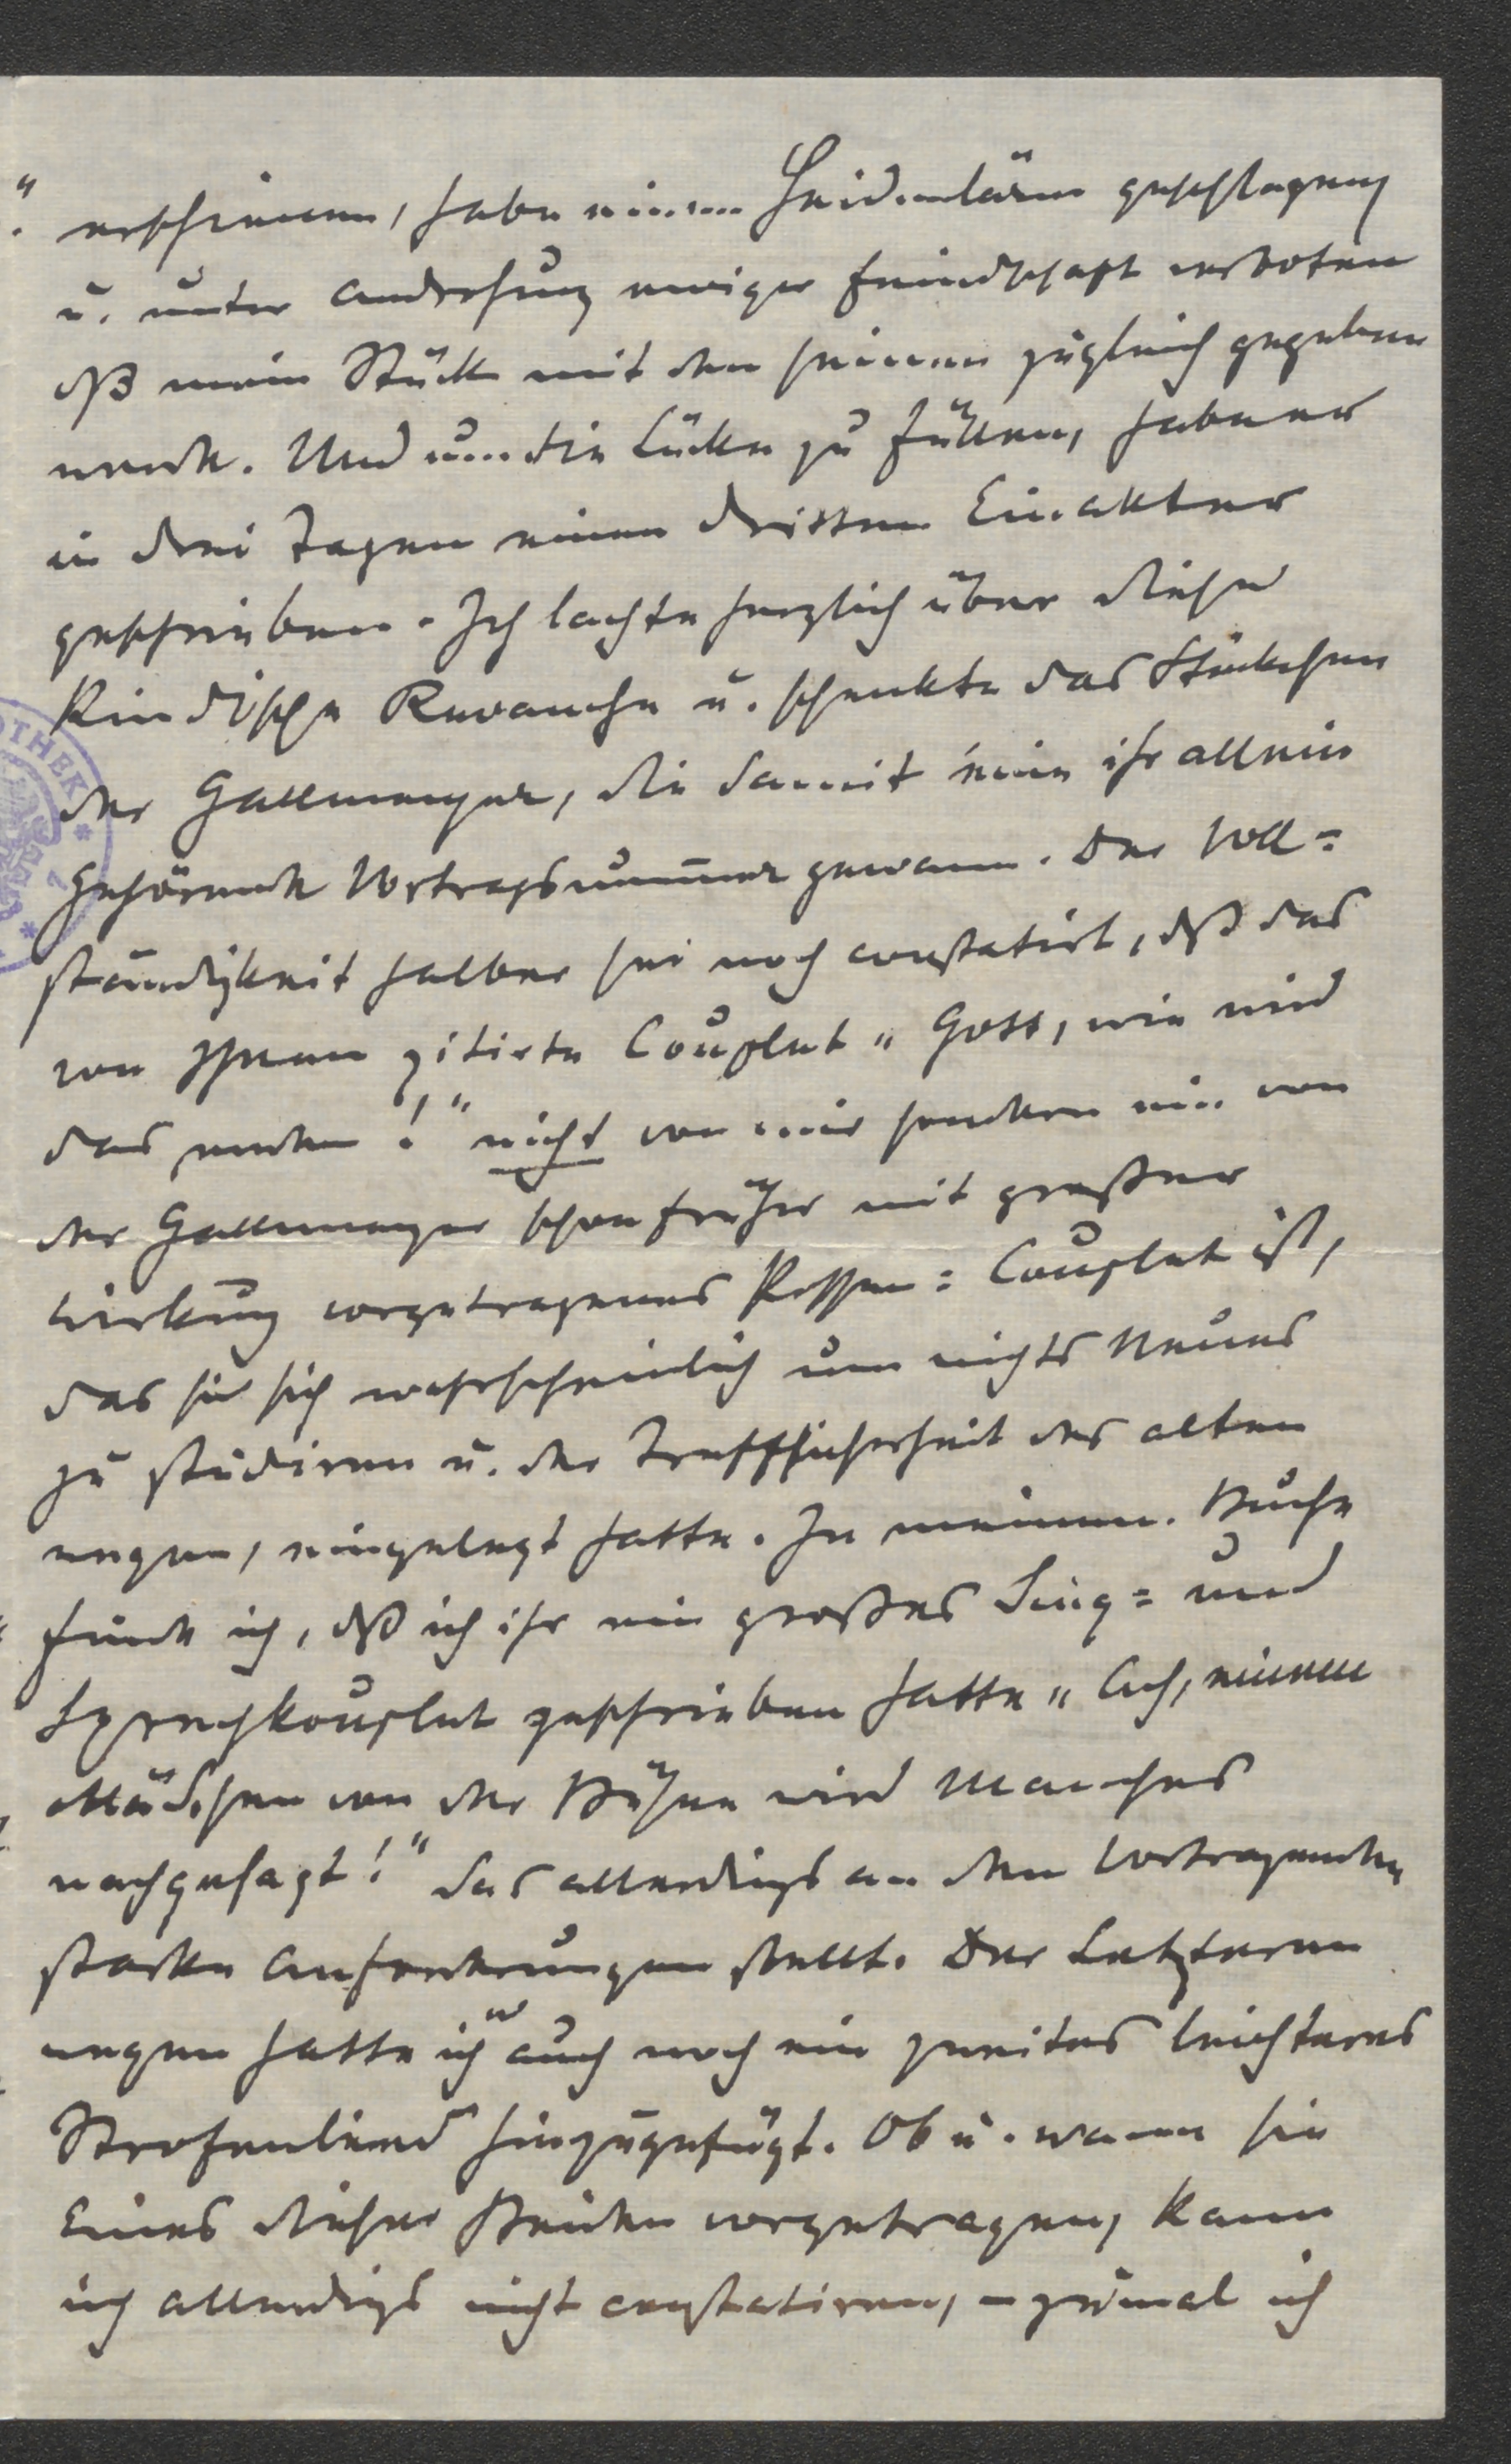 erschienen, habe einen Heidenlärm geschlagen
u. unter Androhung ewiger Feindschaft verboten
dß mein Stück mit den seinen zugleich gegeben
werde. Und um die Lücke zu füllen, habe er
in drei Tagen einen dritten Einakter
geschrieben. Ich lachte herzlich über diese
kindische Revanche u. schenkte das Stückchen
der Gallmeyer, die damit eine ihr allein
gehörende Vortragsnum̄er gewann. Der Voll=
ständigkeit halber sei noch constatirt, dß das
von Ihnen zitirte Couplet „Gott, wie wird
das enden!“ nicht von mir sondern ein von
der Gallmeyer schon früher mit großer
Wirkung vorgetragenes Possen=Couplet ist,
das sie sich wahrscheinlich um nichts Neues
zu studiren u. der Treffsicherheit des alten
wegen, eingelegt hatte. In meinem Buche
finde ich, dß ich ihr ein großes Sing= und
Sprechkouplet geschrieben hatte „Ach, einem
Mädchen von der Bühne wird Manches
nachgesagt!“ das allerdings an den Vortragenden
starke Anforderungen stellt. Der Letzteren
wegen hatte ich auch noch ein zweites leichteres
Strofenlied hinzugefügt. Ob u. wann sie
Eines dieser Beiden vorgetragen, kann
ich allerdings nicht constatiren, – zumal ich
OTHEK